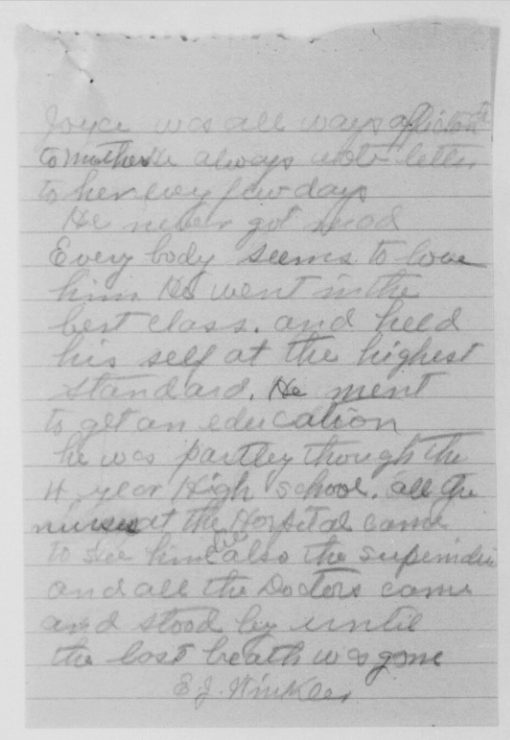 Joyce was all ways affection
to mother He always wrote letter
to her evry few days
He never got mad
Every body seems to love
him He went in the
best class. and held
his self at the highest
standard. He ment
to get an education
he was partley though the
4 year High school. all the
nurses at the Hospital came
to see him die also the superinden
and all the Doctors came
and stood by until
the last breath was gone
E J. Winkler